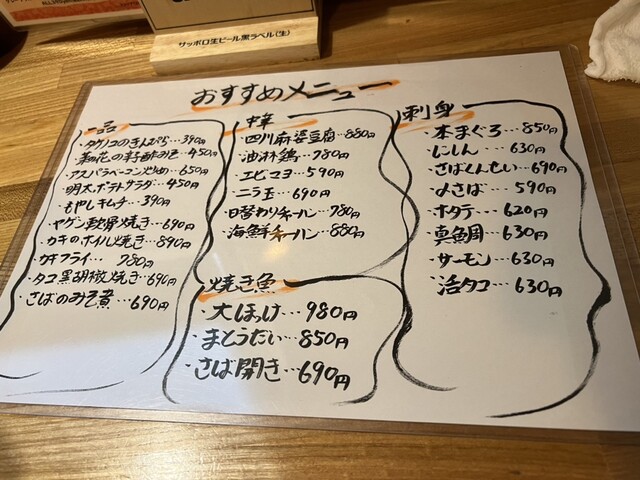 サッポロ生ビール黒ラベル(生)
おすすめメニュー
一品
・タケノコのきんぴら…390円
・菜の花の辛子酢みそ…450円
・アスパラベーコン炒め…650円
・明太ポテトサラダ…450円
・もやしキムチ…390円
・ヤゲン軟骨焼き…690円
・カキのホイル焼き…890円
・カキフライ…780円
・タコ黒胡椒焼き…690円
・さばのみそ煮…690円
中華
・四川麻婆豆腐…880円
・油淋鶏…780円
・エビマヨ…590円
・ニラ玉…690円
・日替わりチャーハン…780円
・海鮮チャーハン…880円
焼き魚
・大ほっけ…980円
・まとうだい…850円
・さば開き…690円
刺身
・本まぐろ…850円
・にしん…630円
・さばくんせい…690円
・〆さば…590円
・ホタテ…620円
・真鯛…630円
・サーモン…630円
・活タコ…630円